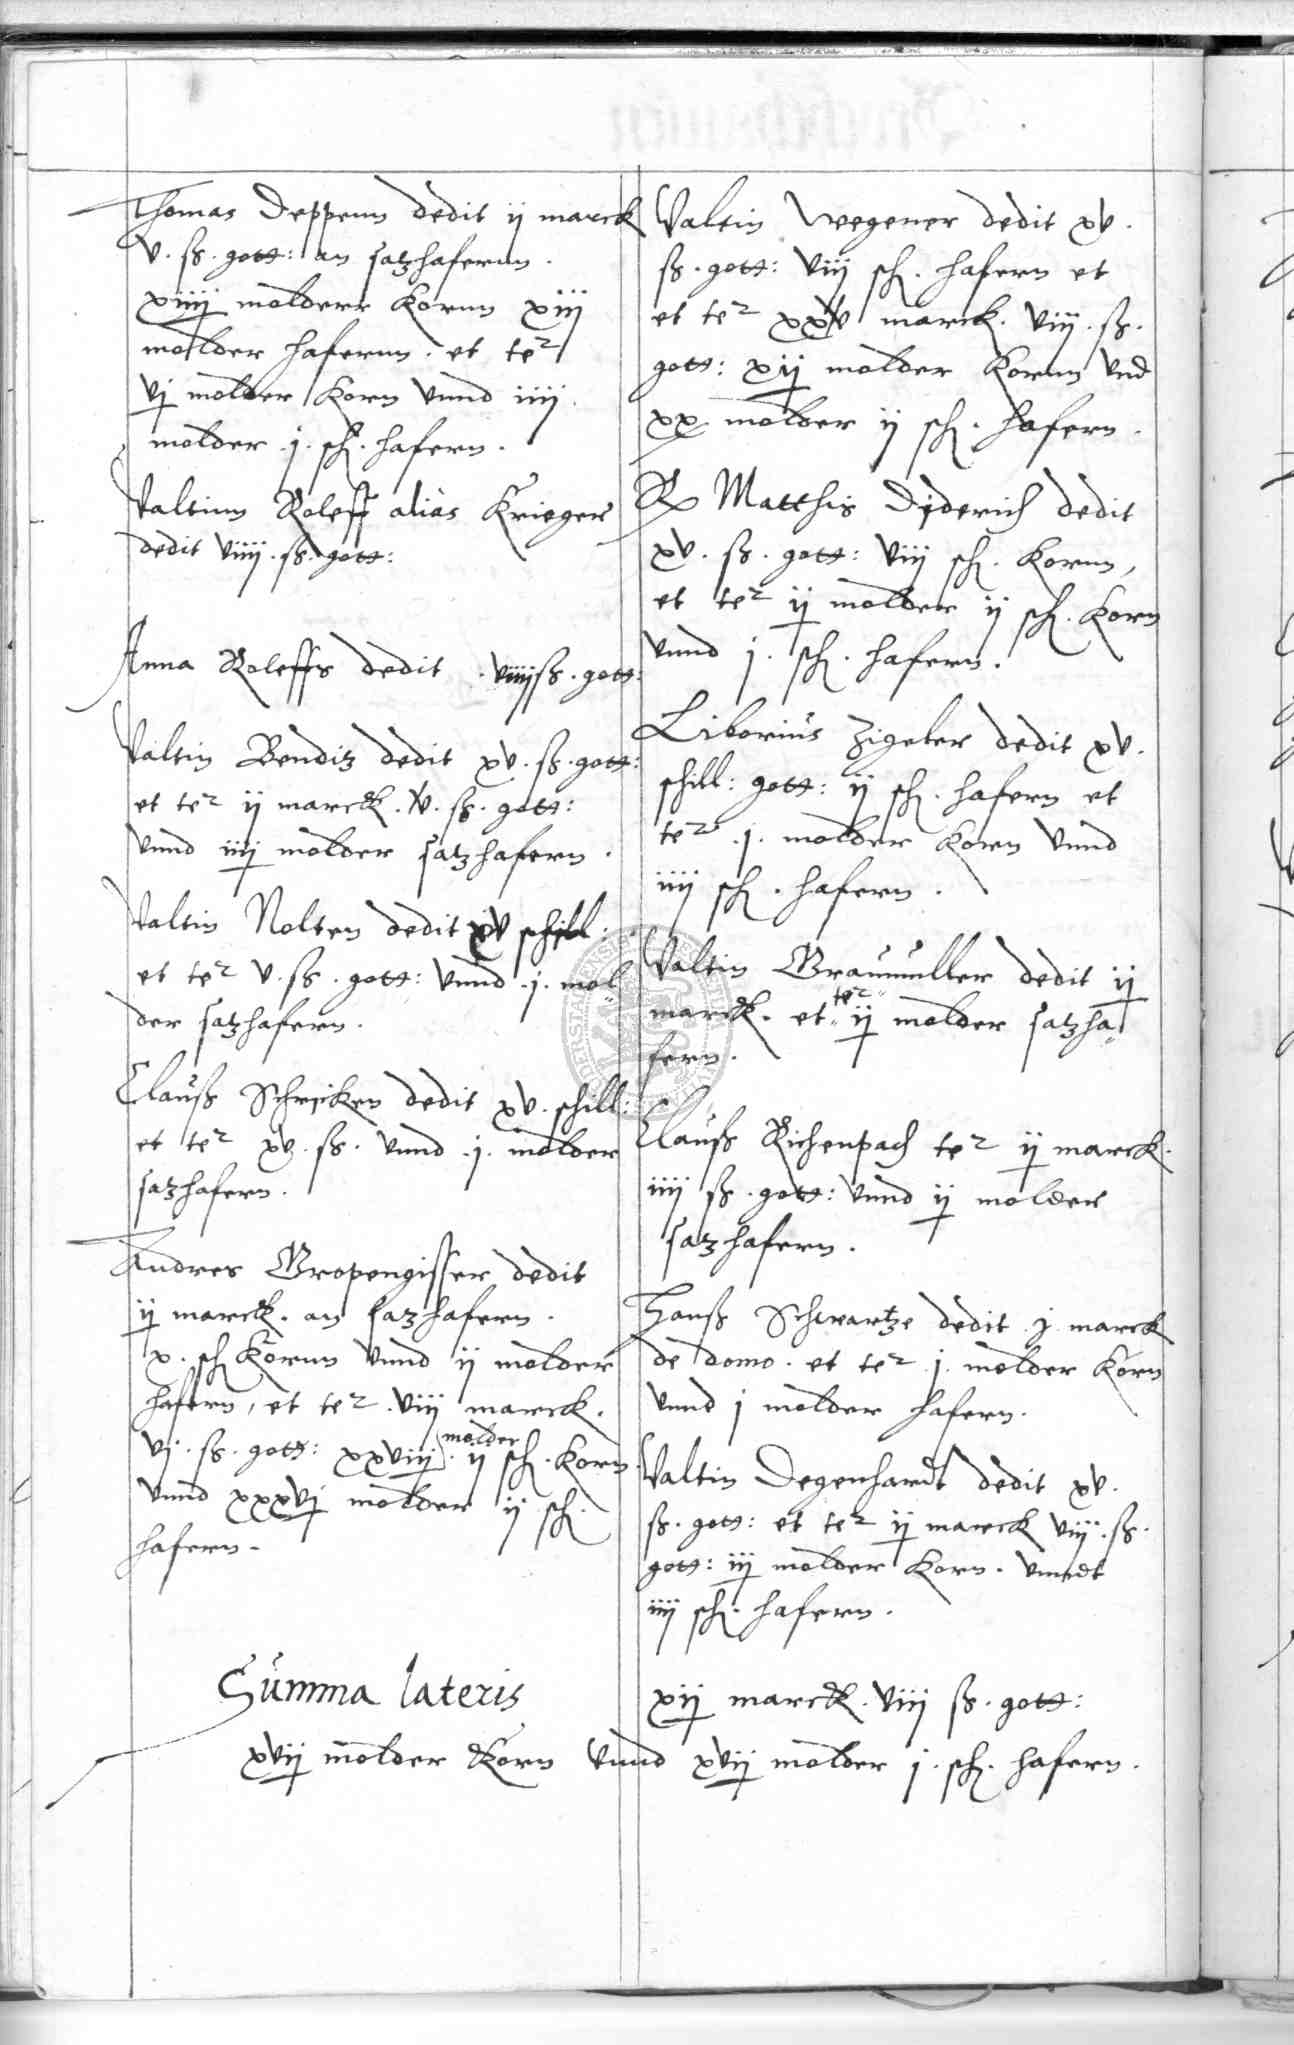 Thomas Deppenn dedit ij marck
v. ß. gott: an satzhafernn.
xiiij molderr Kornn xiij
molder hafernn. et te²
vj molder Korn vnnd iiij
molder .j. sch. hafern.
Valtinn Roleff alias Krieger
dedit viiij. ß. gott:
Anna Roleffs dedit . viiij ß. gott:
Valtin Benditz dedit xv. ß. gott:
et te² ij marck. v. ß. gott:
vnnd iiij molder satzhafern.
Valtin Nolten dedit xv schill:
et te² v. ß. gott: vnnd .j. mol
der satzhafern.
Clauß Schriken dedit xv. schill:
et te² xv. ß. vnnd .j. molder
satzhafern.
Andres Gropengisser dedit
ij marck. an satzhafern.
x. sch Kornn vnnd ij molder
hafern, et te² . viij marck.
vj. ß. gott: xxviij molder . ij sch. Korn
vnnd xxxvj molder ij sch.
hafern.
Valtin Wegener dedit xv.
ß. gott: viij sch. hafern et
et te² marck. viij. ß.
gott: xij molder Kornn vnd
xx molder ij sch. hafern.
Matthis Diderich dedit
xv. ß. gott: viij sch. Kornn,
et te² ij molder ij sch. Korn
vnnd j. sch. hafern.
Liborius Zigeler dedit xv.
schill: gott: ij sch. hafern et
te² .j. molder Korn vnnd
iiij sch. hafern.
Valtin Graumuller dedit ij
marck. et te² ij molder satzha
fern.
Clauß Richenpach te² ij marck.
iiij ß. gott: vnnd ij molder
satzhafern.
Hanß Schwartze dedit j marck
de domo. et te² .j. molder Korn
vnnd j molder hafern.
Valtin Degenhardt dedit xv.
ß. gott: et te² ij marck viij. ß.
gott: iij molder Korn. vnndt
iiij sch. hafern.
Summa lateris xij marck. viij ß. gott:
xvij molder Korn vnnd xvij molder j. sch. hafern.